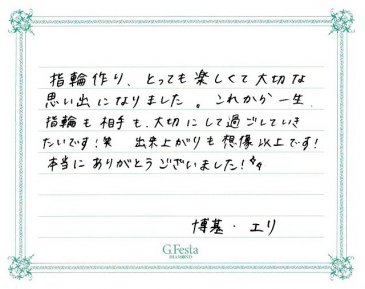 指輪作り、とっても楽しくて大切な
思い出になりました。これから一生、
指輪も相手も、大切にして過ごしていき
たいです！笑 出来上がりも想像以上です！
本当にありがとうございました！
博基・エリ
G.Festa
DIAMOND